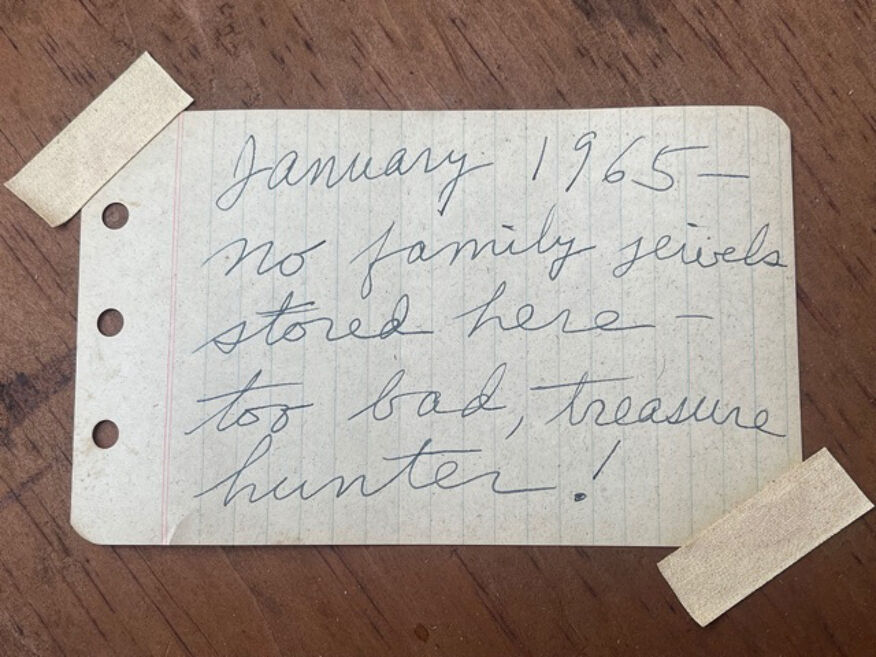 January 1965 —
no family jewels
stored here —
too bad, treasure
hunter!